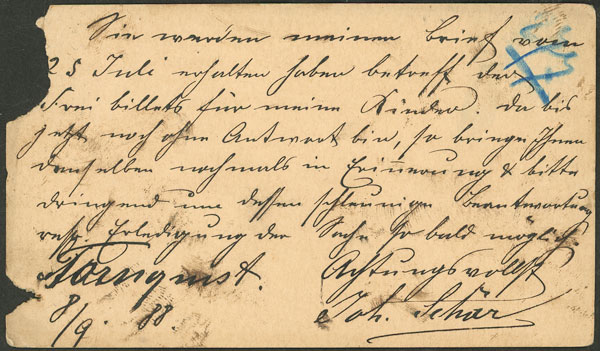 Sie werden meinen Brief vom
25 Juli erhalten haben betreff der
Freibillets für meine Kinder. Da bis
jetzt noch ohne Antwort bin, so bringe Ihnen
denselben nochmals in Erinnerung & bitte
dringend um dessen schleunige Beantwortung
resp. Erledigung der Sache so bald möglich
Achtungsvollst
Tornquist. Joh. Schär
8/9. 88.